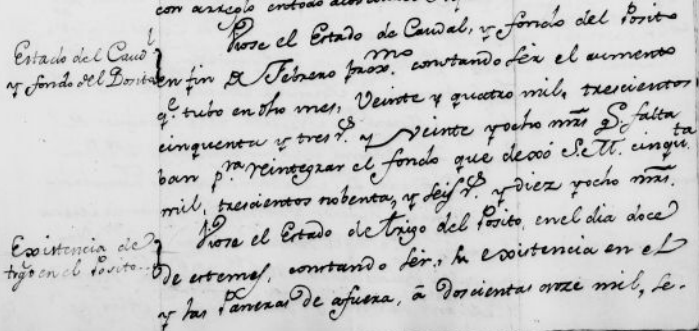 con arreglo en todo
Viose el Estado de Caudal, y fondo del Posito
Estado del Caudl.
y fondo del Posito
en fin de Febrero proxmo. constando ser el aumento
qe. tubo en dho mes, Veinte y quatro mil, trescientos
cinquenta y tres rs. y veinte y ocho mrs. q. falta
ban pra. reintegrar el fondo que dexó S.M. cinquta.
mil, trescientos nobenta, y seis rs. y diez y ocho mrs.
Existencia de
trigo en el Posito
Viose el Estado de trigo del Posito, en el dia doce
de este mes, constando ser, la existencia en el
y las Paneras de afuera, á doscientas onze mil, se-